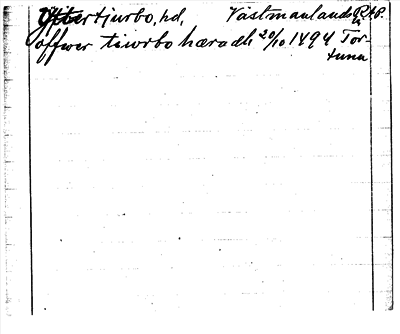 Yttertjurbo, hd, Västmanlands RAP.
offwer tiwrbo hæradh 20/10 1494 Tor-
tuna